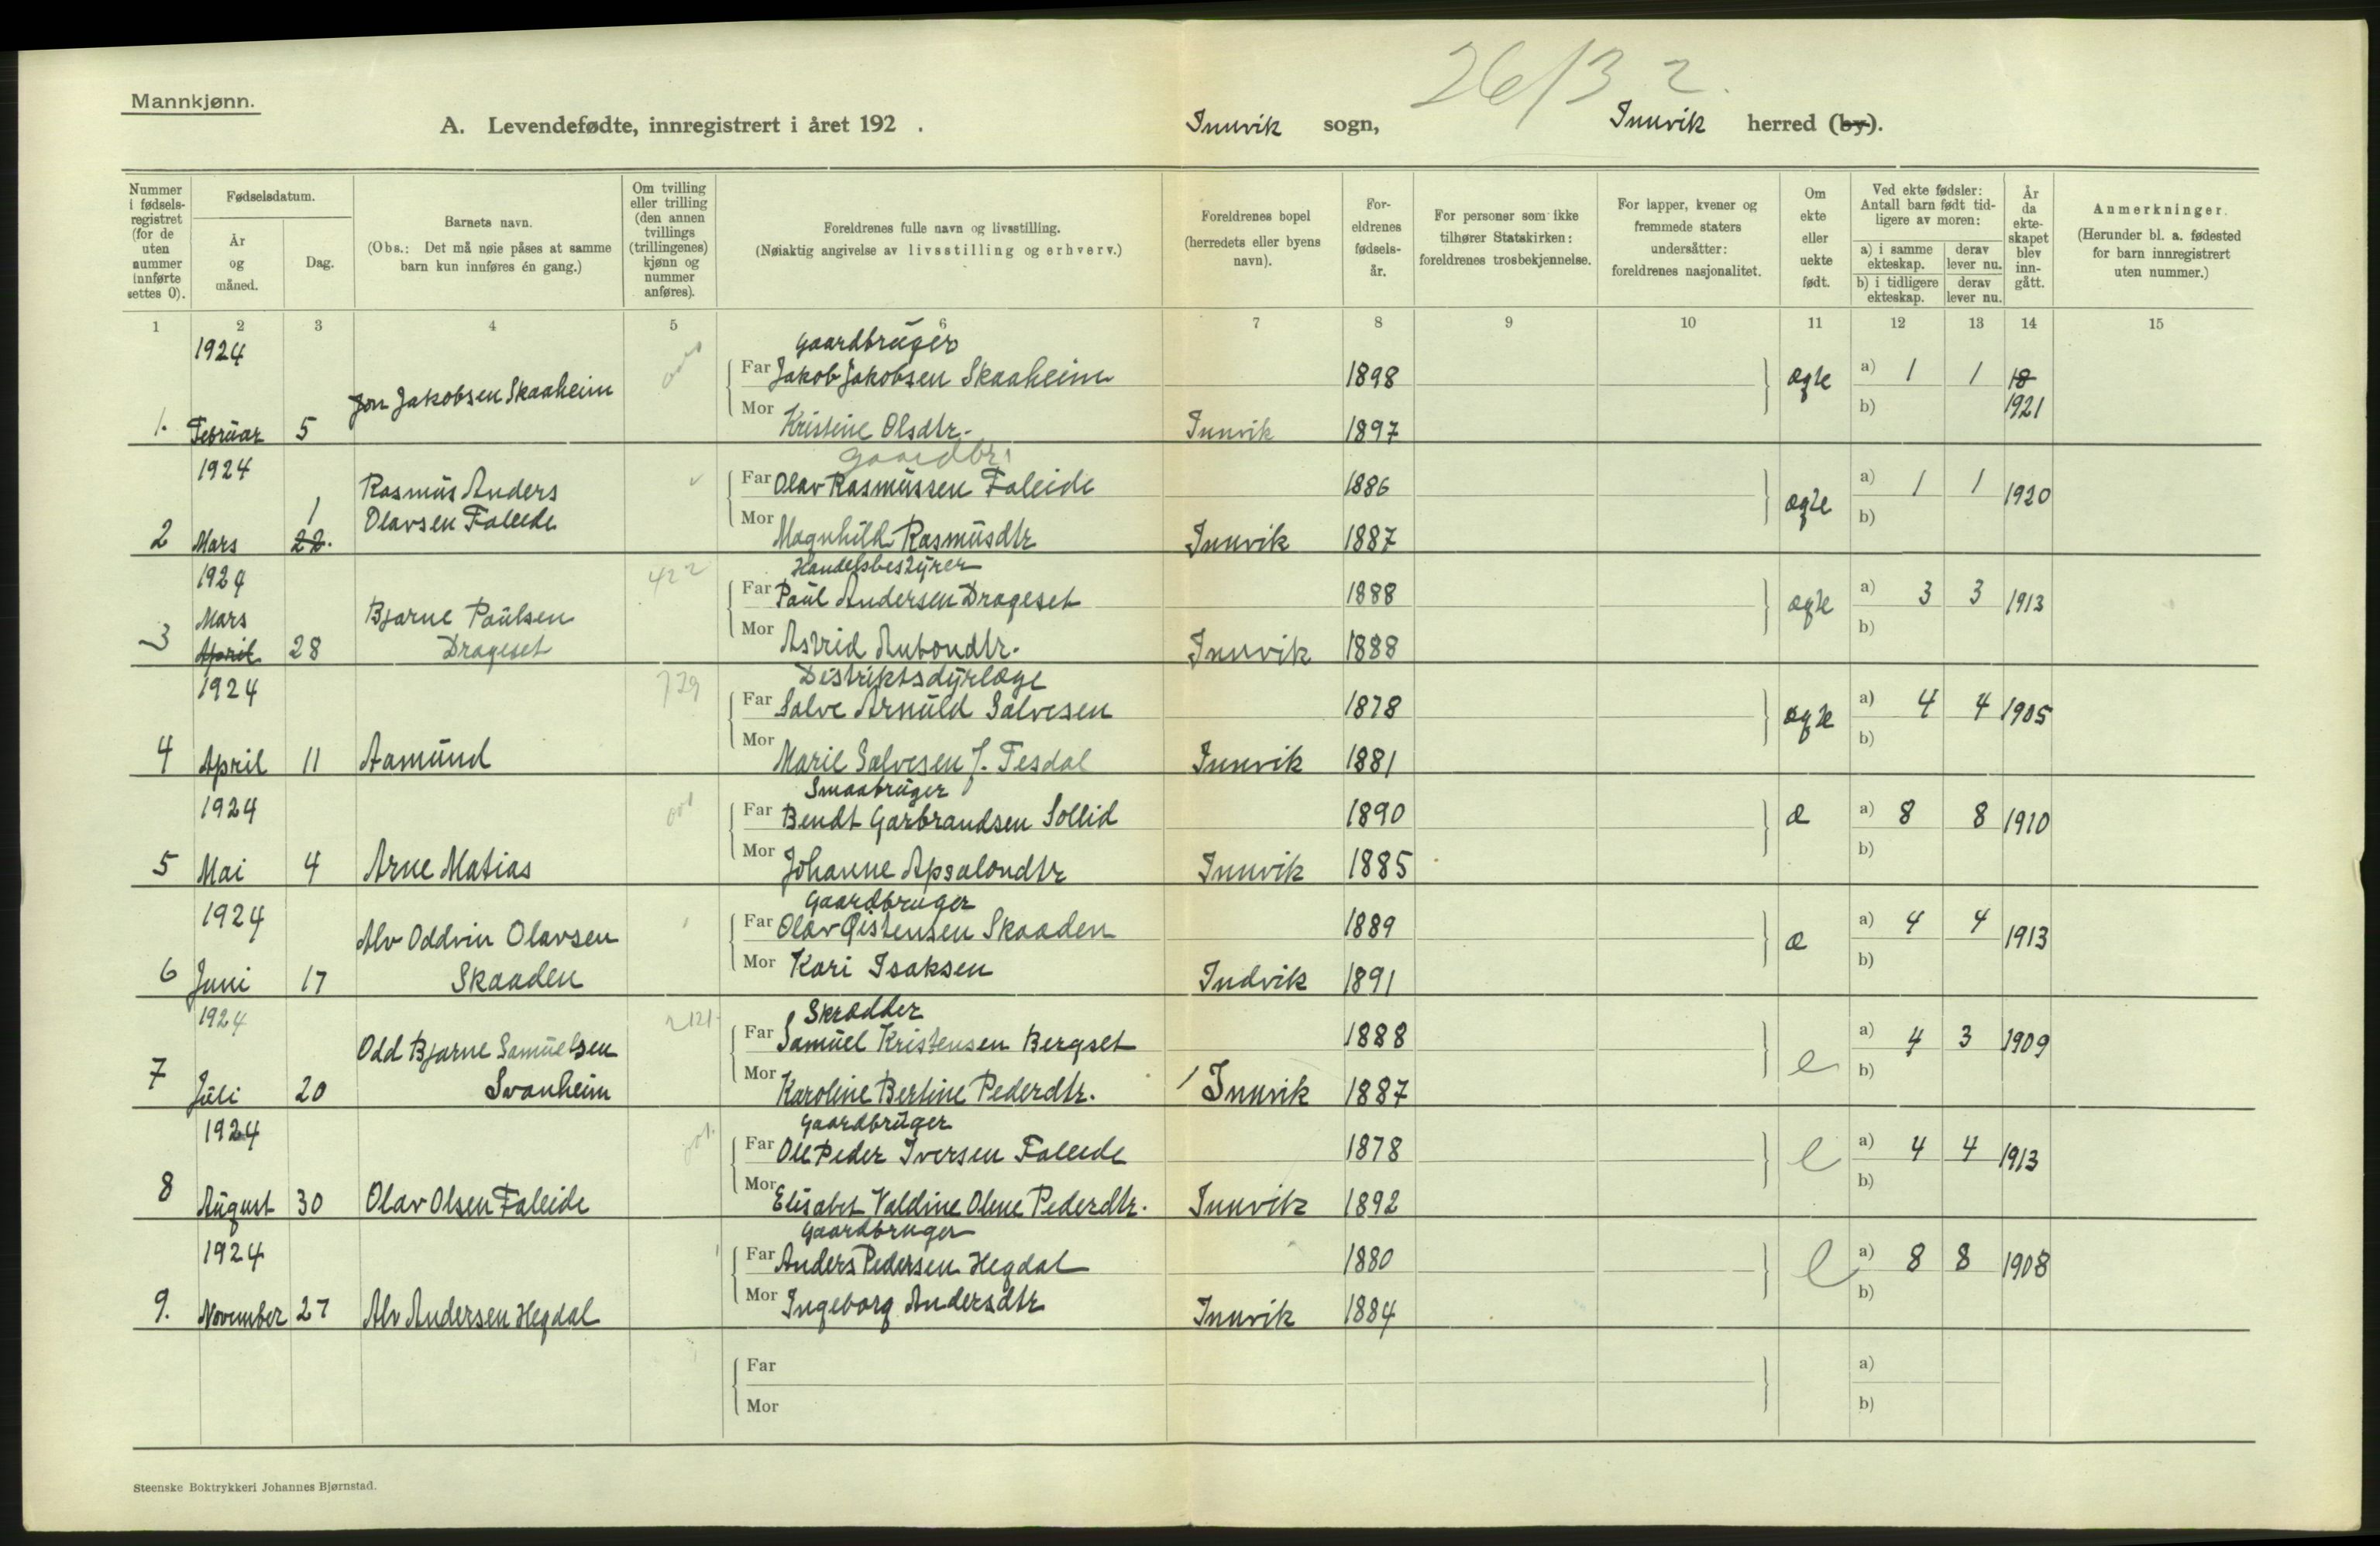 26/3 2.
Mannkjønn.
A. Levendefødte, innregistrert i året 192 . Innvik sogn, Innvik herred (by).
Nummer i fødsels-registret (for de uten nummer innførte settes 0).
Fødselsdatum.
År og måned.
Dag.
Barnets navn.
(Obs.: Det må nøie påses at samme barn kun innføres én gang.)
Om tvilling eller trilling (den annen tvillings (trillingenes) kjønn og nummer anføres).
Foreldrenes fulle navn og livsstilling.
(Nøiaktig angivelse av livsstilling og erhverv.)
Foreldrenes bopel (herredets eller byens navn).
For-eldrenes fødsels-år.
For personer som ikke tilhører Statskirken: foreldrenes trosbekjennelse.
For lapper, kvener og fremmede staters undersåtter: foreldrenes nasjonalitet.
Om ekte eller uekte født.
Ved ekte fødsler: Antall barn født tid-ligere av moren:
a) i samme ekteskap. derav lever nu.
b) i tidligere ekteskap. derav lever nu.
År da ekte-skapet blev inn-gått.
Anmerkninger.
(Herunder bl. a. fødested for barn innregistrert uten nummer.)
1 2 3 4 5 6 7 8 9 10 11 12 13 14 15
1924 Gaardbruger
Jon Jakobsen Skaaheim Far Jakob Jakobsen Skaaheim 1898 ægte a) 1 1 18
1. Februar 5 Mor Kristine Olsdtr. Innvik 1897 b) 1921
1924 gaardbr.
Rasmus Anders Far Olav Rasmussen Faleide 1886 ægte a) 1 1 1920
Olavsen Faleide 1
2 Mars 22. Mor Magnhild Rasmusdtr Innvik 1887 b)
1924 422 Handelsbestyrer
Mars Bjarne Paulsen Far Paul Andersen Drageset 1888 ægte a) 3 3 1913
3 April 28 Drageset Mor Astrid Antondtr. Innvik 1888 b)
1924 729 Distriktsdyrlæge
Far Salve Arnuld Salvesen 1878 ægte a) 4 4 1905
4 April 11 Aamund Mor Marie Salvesen f. Tesdal Innvik 1881 b)
1924 Smaabruger
Far Bendt Garbrandsen Sollid 1890 æ a) 8 8 1910
5 Mai 4 Arne Matias Mor Johanne Apsalondtr Innvik 1885 b)
1924 Gaardbruger
Alv Oddvin Olavsen Far Olav Øistensen Skaaden 1889 æ a) 4 4 1913
6 Juni 17 Skaaden Mor Kari Isaksen Indvik 1891 b)
1924 2121 Skrædder
Odd Bjarne Samuelsen Far Samuel Kristensen Bergset 1888 e a) 4 3 1909
7 Juli 20 Svanheim Mor Karoline Bertine Pederdtr. Innvik 1887 b)
1924 Gaardbruger
Far Ole Peder Iversen Faleide 1878 e a) 4 4 1913
8 August 30 Olav Olsen Faleide Mor Elisabet Valdine Oline Pederdtr. Innvik 1892 b)
1924 Gaardbruger
Far Anders Pedersen Hegdal 1880 e a) 8 8 1908
9. November 27 Alv Andersen Hegdal Mor Ingeborg Andersdtr Innvik 1884 b)
Far a)
Mor b)
Steenske Boktrykkeri Johannes Bjørnstad.